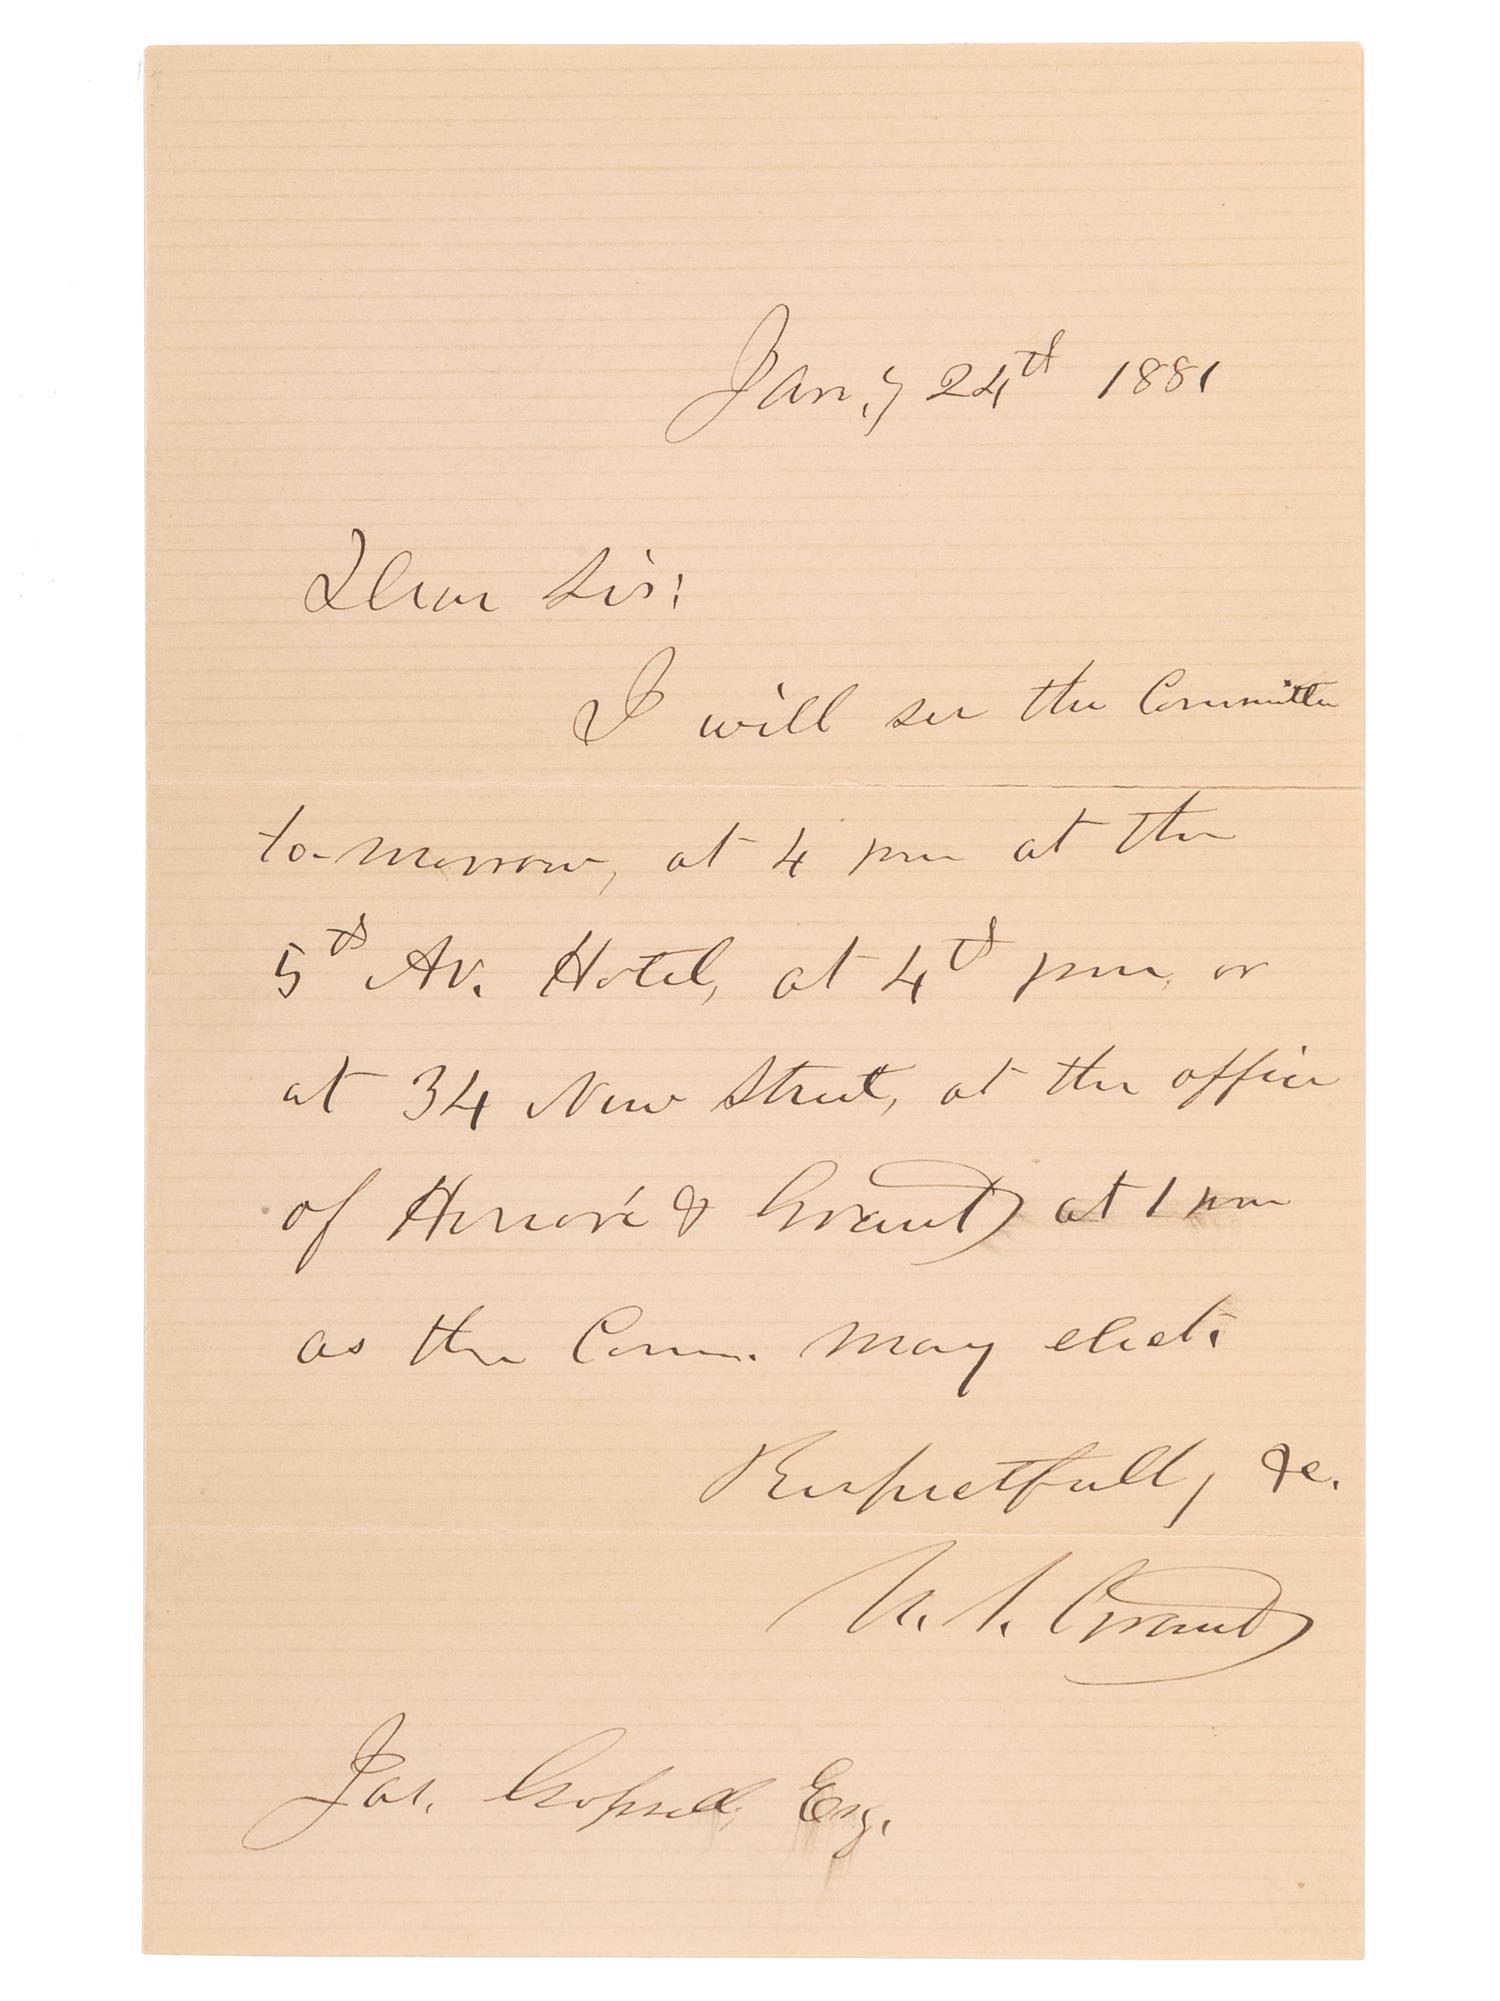 Jan.y 24th 1881
Dear Sir:
I will see the Committee
to-morrow, at 4 pm at the
5th Av. Hotel, at 4th pm, or
at 34 New Street, at the office
of Honoré & Grant at 1 pm
as the Com. may elect.
Respectfully &c.
U. S. Grant
Jas. Esq.